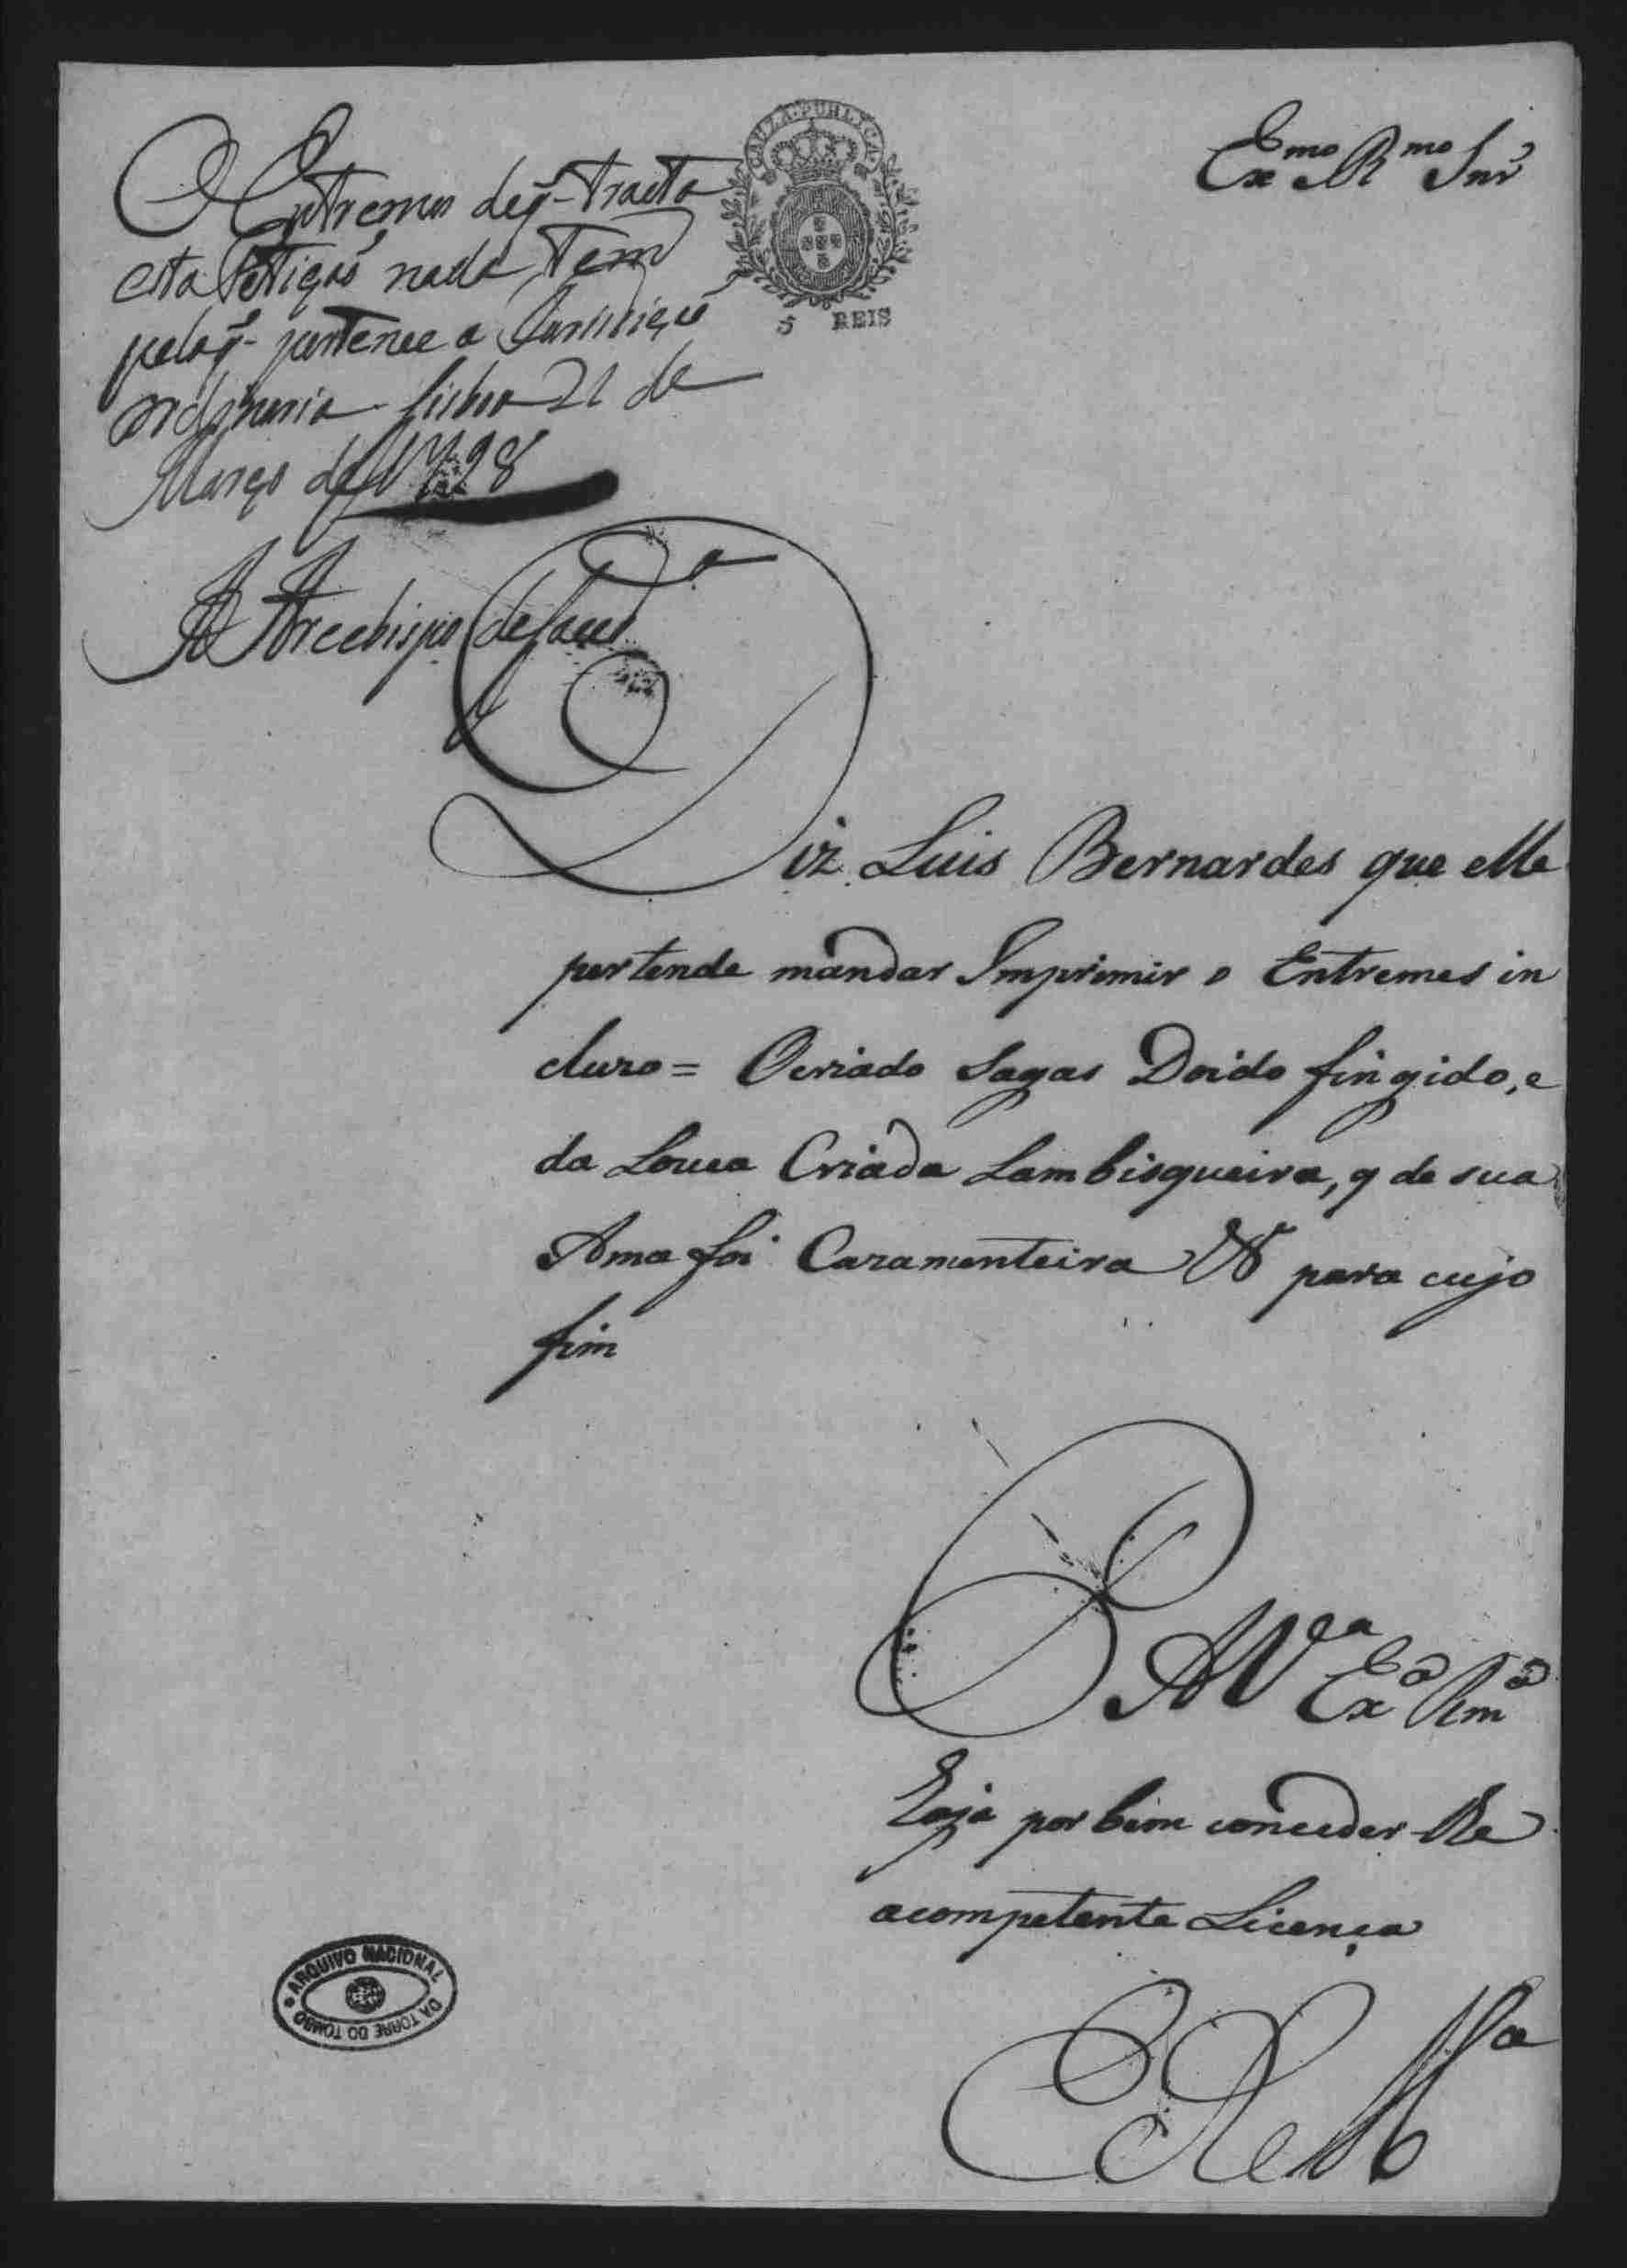 Exmo Rmo Snr
CAUZA PUBLICA
5 REIS
O Entremes de q̃ tracta
esta Petiçaõ nada tem
pelo q̃ pertence a Jurisdiçaõ
ordinaria Lisboa 21 de
Março de 1798
A Arcebispo de Laced.a
Diz Luis Bernardes que elle
pertende mandar Imprimir o Entremes in
cluzo = Ocriado Sagas Doido fingido, e
da Louca Criada Lambisqueira, q de sua
Ama foi Cazamenteira para cujo
fim
P A V.ea Exa Rma
haja por bem conceder-lhe
acompetente Licença
E R Mce
ARQUIVO NACIONAL DA TORRE DO TOMBO